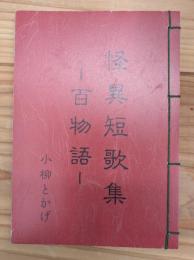 怪異短歌集
―百物語―
小柳とかげ